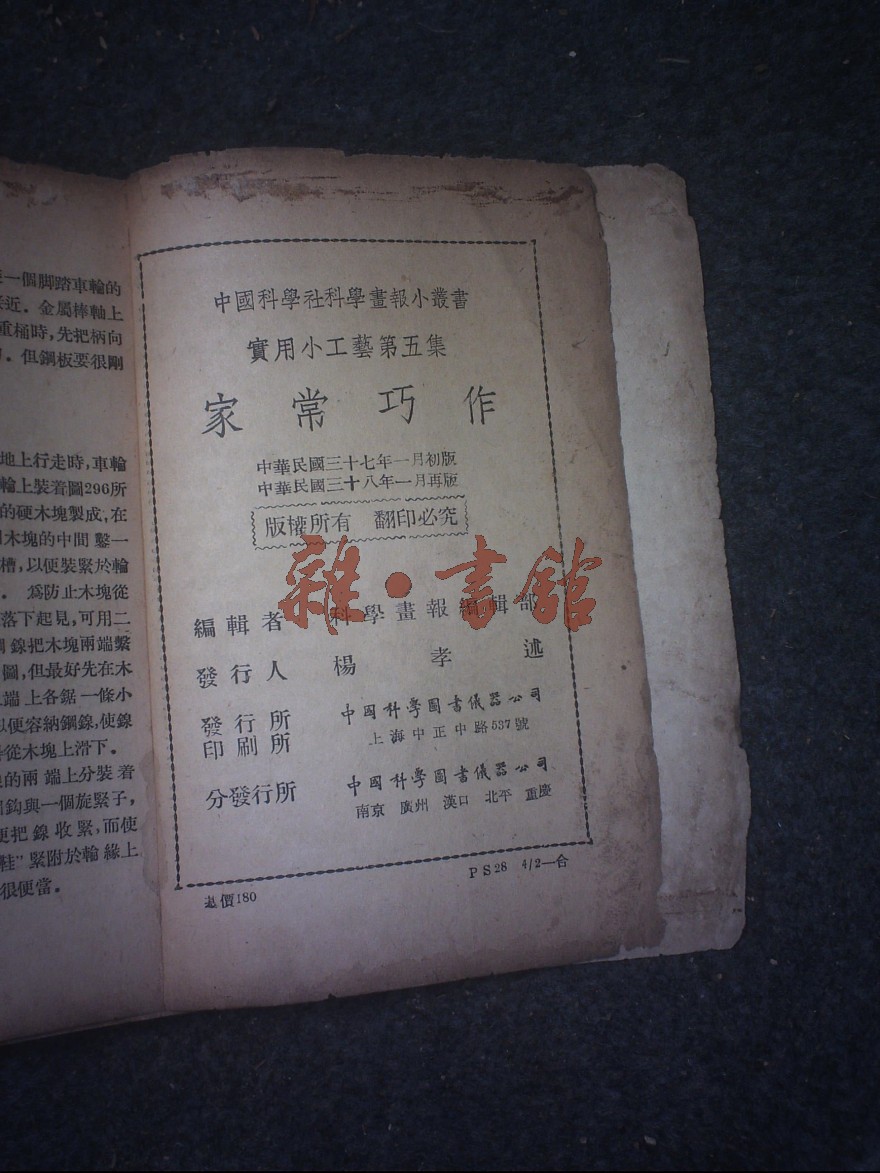 一個脚踏車輪的
近. 金屬棒軸上
重桶時,先把柄向
. 但鋼板要很剛
地上行走時,車輪
輪上裝着圖296所
的硬木塊製成,在
木塊的中間鑿一
槽,以便裝緊於輪
. 爲防止木塊從
落下起見,可用二
鋼線把木塊兩端繫
圖,但最好先在木
端上各鋸一條小
以便容納鋼線,使線
從木塊上滑下.
的兩端上分裝着
鈎與一個旋緊子,
便把線收緊,而使
鞋”緊附於輪緣上
很便當.
中國科學社科學畫報小叢書
實用小工藝第五集
家常巧作
中華民國三十七年一月初版
中華民國三十八年一月再版
版權所有 翻印必究
雜·書館
編輯者 科學畫報編輯部
發行人 楊孝述
發行所
印刷所
中國科學圖書儀器公司
上海中正中路537號
分發行所
中國科學圖書儀器公司
南京 廣州 漢口 北平 重慶
價180
PS28 4/2—合